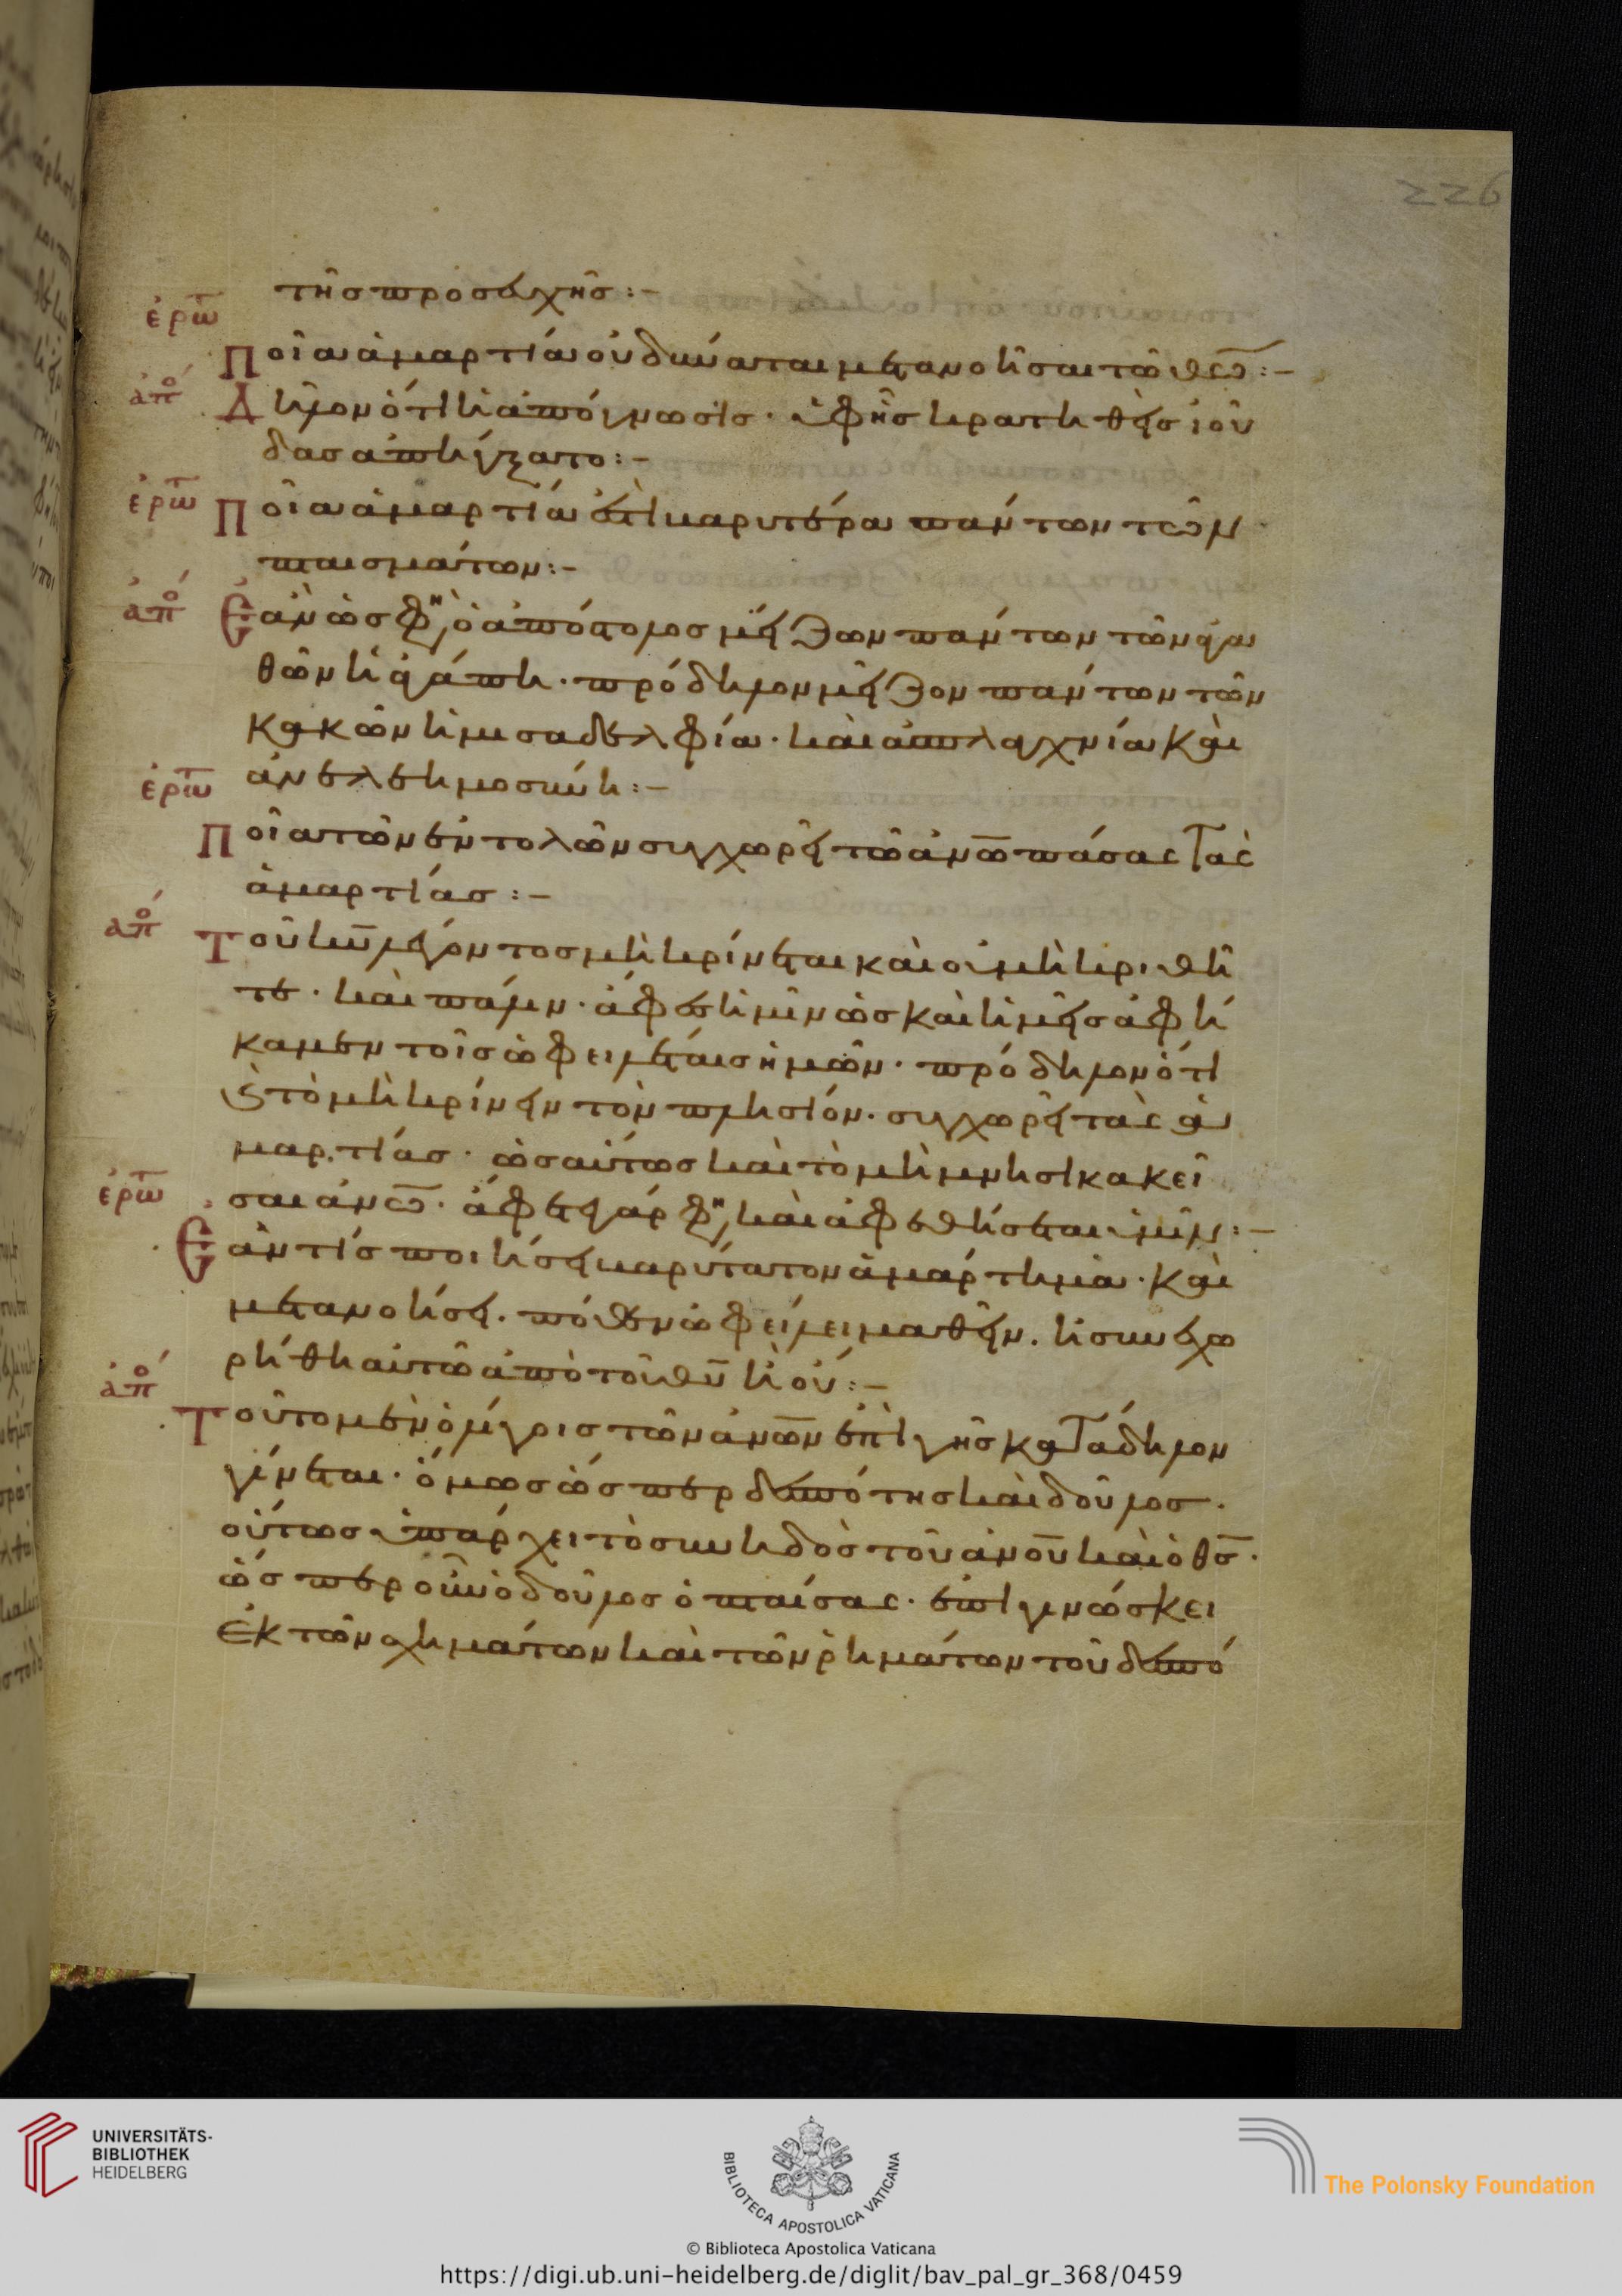 226
τῆς προσευχῆς:-
ἐρω
Ποία ἁμαρτία οὐ δύναται μετανοῆσαι τῶ θεῶ:-
ἀπο
Δῆλον ὅτι ἡ ἀπόγνωσις· ὑφ' ἧς κρατηθεὶς ἰού
δας ἀπήγξατο:-
ἐρω
Ποία ἁμαρτία ἐστὶ βαρυτέρα πάντων τῶν
πταισμάτων:-
ἀπο
Ἐὰν ὡς φη ὁ ἀπόστολος μείζων πάντων τῶν ἀγα
θῶν ἡ ἀγάπη· πρόδηλον μεῖζον πάντων τῶν
κακῶν ἡ μισαδελφία· καὶ ἀσπλαγχνία καὶ
ἀνελεημοσύνη:-
ἐρω
Ποία τῶν ἐντολῶν συγχωρεῖ τῶ ἀνω πάσας τὰς
ἁμαρτίας:-
ἀπο
Τοῦ κυ λέγοντος μὴ κρίνεται καὶ οὐ μὴ κριθῆ
τε· καὶ πάλιν· ἄφες ἡμῖν ὡς καὶ ἡμεῖς ἀφή
καμεν τοῖς ὀφειλέταις ἡμῶν· πρόδηλον ὅτι
καὶ τὸ μὴ κρίνειν τὸν πλησίον· συγχωρεῖ τὰς ἁ
μαρτίας· ὡσαύτως καὶ τὸ μὴ μνησικακεῖ
σαι ἀνω· ἄφεται γάρ φη καὶ ἀφεθήσεται ὑμῖν:-
ἐρω
Ἐάν τις ποιήσει βαρύτατον ἁμάρτημα· καὶ
μετανοήσει· πόθεν ὀφείλει μαθεῖν· ἢ συνεχω
ρήθη αὐτῶ ἀπὸ τοῦ θυ ἢ οὔ:-
ἀπο
Τοῦτο μὲν ὀλίγοις τῶν ἀνων ἐπὶ γῆς κατάδηλον
γίνεται· ὅμως ὥσπερ δεσπότης καὶ δοῦλος·
οὕτως ὑπάρχει τὸ συνηδὸς τοῦ ἀνου καὶ ὁ θς·
ὥσπερ οὖν ὁ δοῦλος ὁ πταίσας· ἐπιγινώσκει
ἐκ τῶν σχημάτων καὶ τῶν ῥημάτων τοῦ δεσπό
UNIVERSITÄTS-
BIBLIOTHEK
HEIDELBERG
BIBLIOTECA APOSTOLICA VATICANA
© Biblioteca Apostolica Vaticana
The Polonsky Foundation
https://digi.ub.uni-heidelberg.de/diglit/bav_pal_gr_368/0459